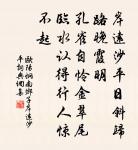 岸遠沙平日斜歸
路晚霞明
孔雀自憐金翠尾
臨水認得行人驚
不起
歐陽炯南鄉子岸遠沙
平詞典網集